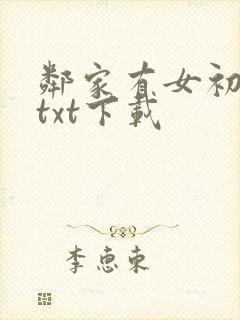 鄰家有女初
txt下載
李恵東